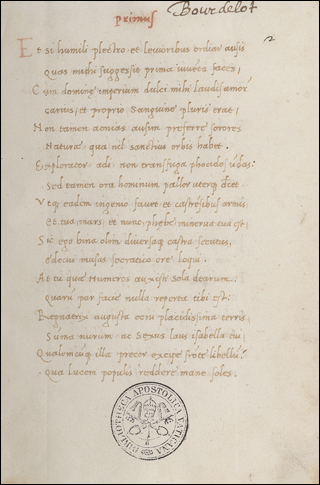 primus
Bourdelot
2
Et si humili plectro et levioribus ordiar ausis
Quas mihi suggessit prima iuventa faces,
Cum dominę imperium dulci mihi laudis amor
carius, et proprio sanguine pluris erat,
Non tamen aonias ausim preferre sorores
Naturę, qua nil sanctius orbis habet.
Explorator adi non transfuga phocidos
Sed tamen ora hominum pallor uterq decet
Utq eadem ingenio favet et castrēsibus armis
et tua, mars, et nunc, phębe minerva tua est,
Sic ego bina olim diversaq castra secutus,
ędocui musas socratico ore loqui.
At tu quę Numeros auxisti sola dearum
Quarū par facie nulla reperta tibi est:
Regnatrix augusta ocni placidissima terris,
Sūma nurum ac Sexus laus isabella tui,
Qualemcūq illa precor excipe frōte libellū
Qua Lucem populis reddere mane soles.
BIBLIOTHECA APOSTOLICA VATICANA